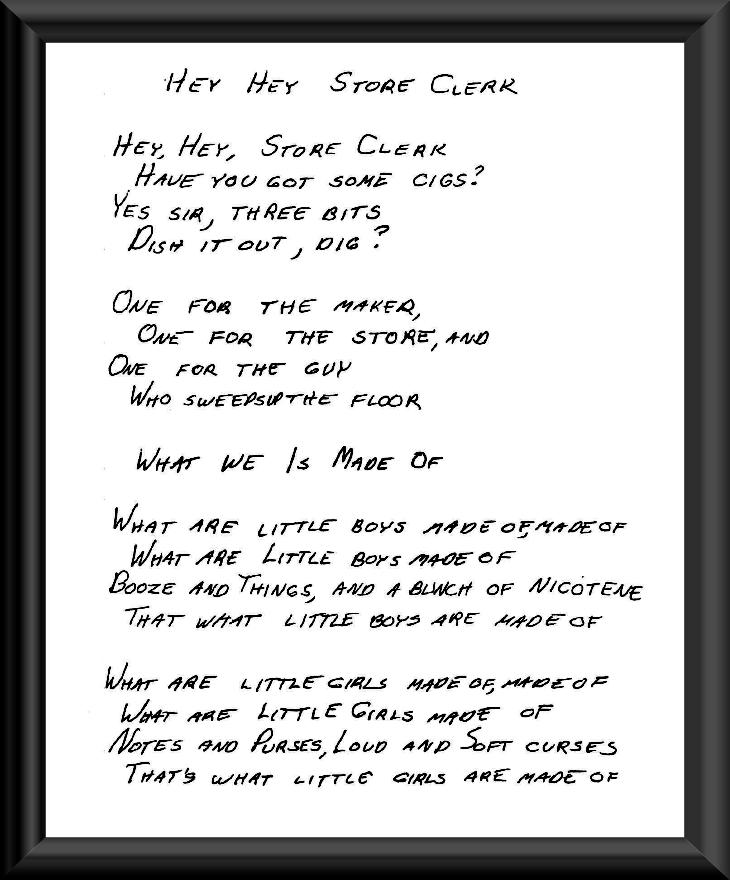 Hey Hey Store Clerk
Hey, Hey, Store Clerk
Have you got some cigs?
Yes sir, three bits
Dish it out, dig?
One for the maker,
One for the store, and
One for the guy
Who sweepsup the floor
What we Is Made Of
What are little boys made of, made of
What are Little boys made of
Booze and Things, and a bunch of Nicotene
That what little boys are made of
What are little girls made of, made of
What are little Girls made of
Notes and Purses, Loud and Soft curses
That's what little girls are made of